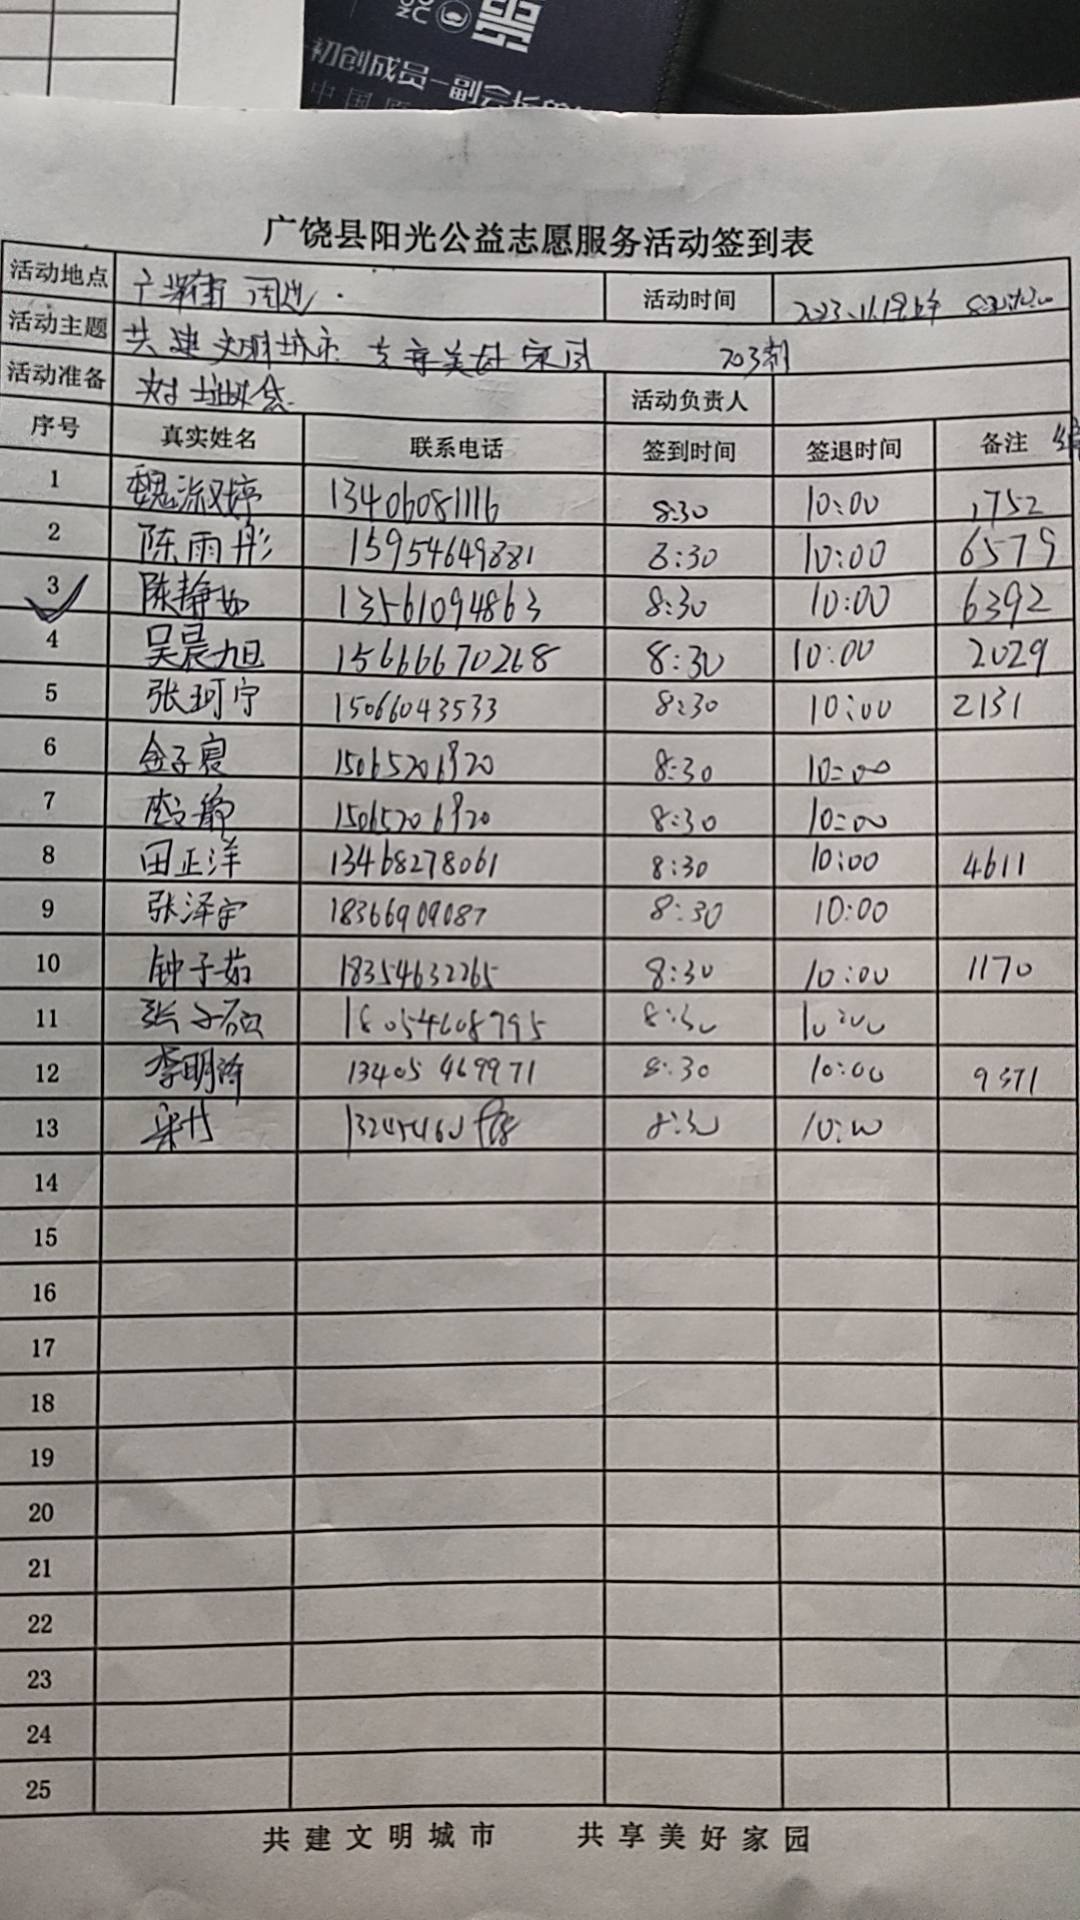 初创成员—副会长单位
广饶县阳光公益志愿服务活动签到表
活动地点 周边 活动时间 2023.11.19 8:30
活动主题 共建文明城市 共享美好家园
活动准备 活动负责人
序号 真实姓名 联系电话 签到时间 签退时间 备注
1 魏淑婷 13406081116 8:30 10:00 1752
2 陈雨彤 15954649881 8:30 10:00 6579
3 陈静如 13561094863 8:30 10:00 6392
4 吴晨旭 15666670268 8:30 10:00 2029
5 张珂宁 15066043533 8:30 10:00 2131
6 金子宸 15065206920 8:30 10:00
7 15065206920 8:30 10:00
8 田正洋 13468278061 8:30 10:00 4611
9 张泽宇 18366909087 8:30 10:00
10 钟子茹 18354632265 8:30 10:00 1170
11 张子硕 18054608795 8:30 10:00
12 李明涛 13405469971 8:30 10:00 9371
13 8:30 10:00
14
15
16
17
18
19
20
21
22
23
24
25
共建文明城市 共享美好家园